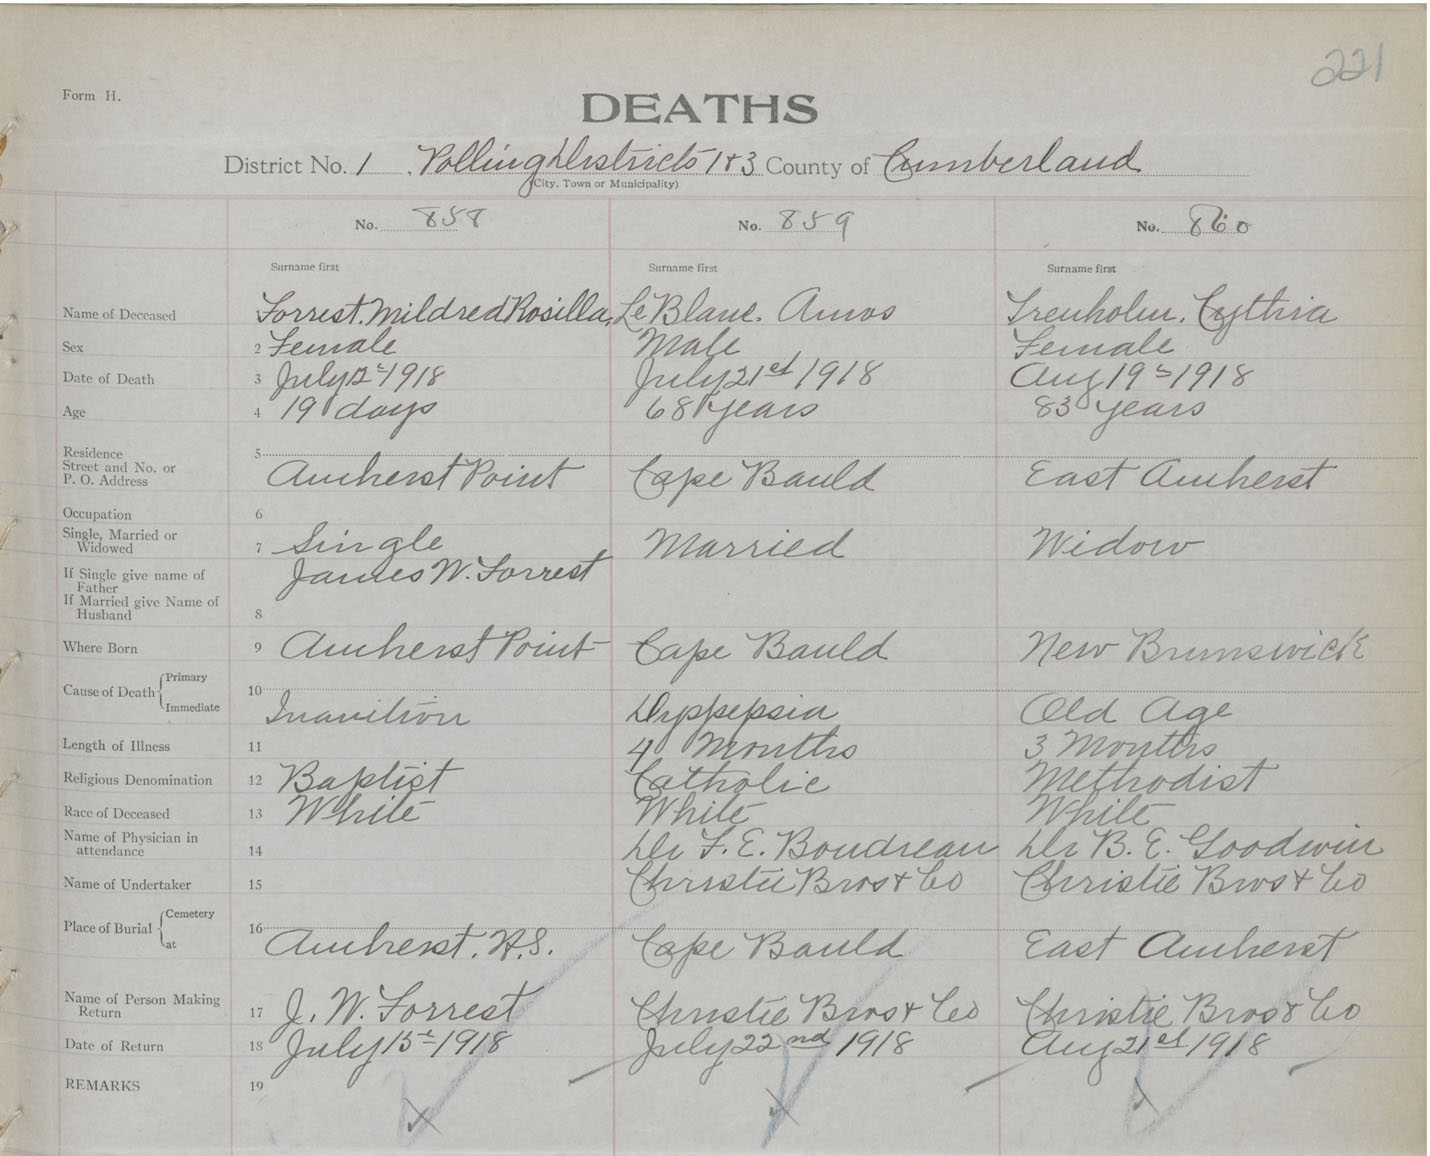 221
Form H.
DEATHS
District No. 1, Polling Districts 1 & 3 County of Cumberland
(City, Town or Municipality)
No. 858 No. 859 No. 860
Surname first Surname first Surname first
Name of Deceased Forrest. Mildred Rosilla, Le Blanc. Amos Trenholm. Cythria
Sex 2 Female Male Female
Date of Death 3 July 12th 1918 July 21st 1918 Aug 19th 1918
Age 4 19 days 68 years 83 years
Residence 5
Street and No. or
P. O. Address Amherst Point Cape Bauld East Amherst
Occupation 6
Single, Married or
Widowed 7 Single Married Widow
If Single give name of James W. Forrest
Father
If Married give Name of
Husband 8
Where Born 9 Amherst Point Cape Bauld New Brunswick
Cause of Death Primary 10
Immediate Inanition Dyspepsia Old Age
Length of Illness 11 4 Months 3 Months
Religious Denomination 12 Baptist Catholic Methodist
Race of Deceased 13 White White White
Name of Physician in
attendance 14 Dr F. E. Boudreau Dr B. E. Goodwin
Name of Undertaker 15 Christie Bros & Co Christie Bros & Co
Place of Burial Cemetery 16
at Amherst. N.S. Cape Bauld East Amherst
Name of Person Making
Return 17 J. W. Forrest Christie Bros & Co Christie Bros & Co
Date of Return 18 July 15th 1918 July 22nd 1918 Aug 21st 1918
REMARKS 19
x x x